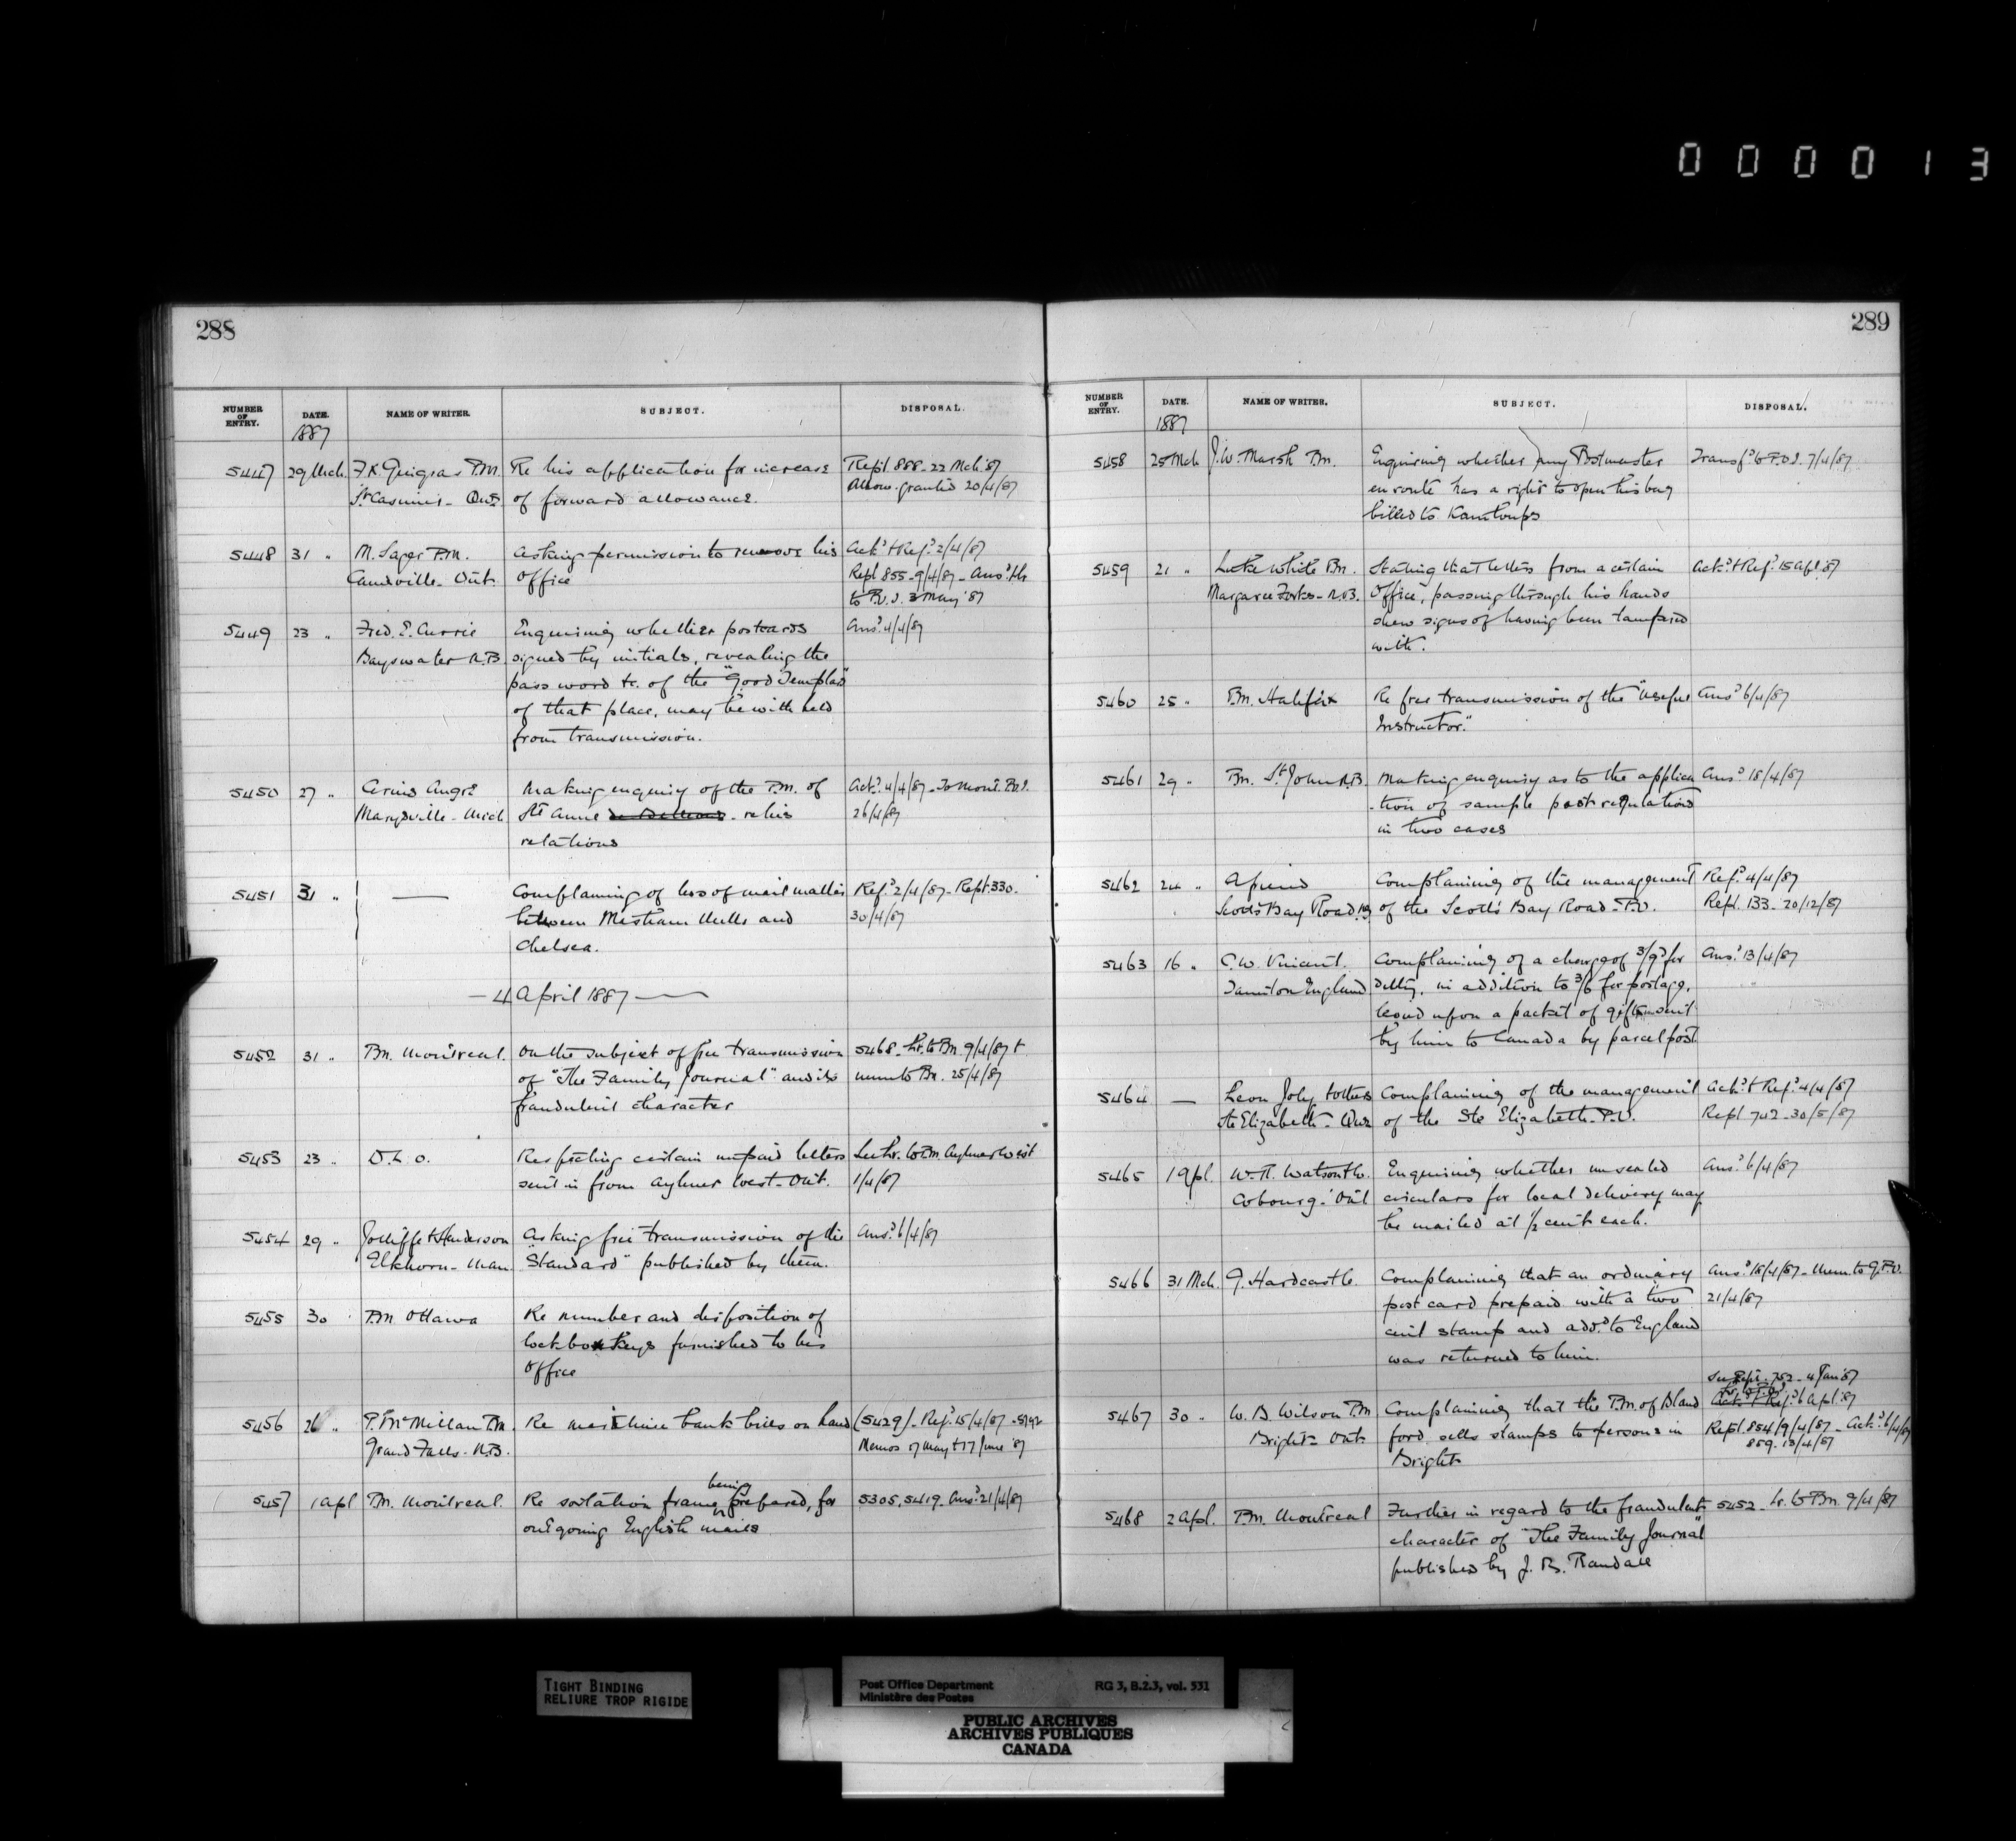 000013
288
NUMBER OF ENTRY. DATE. NAME OF WRITER. SUBJECT. DISPOSAL.
1887
5447 29 Mch. F.X. Guigras P.M. Re his application for increase Rept. 888-22 Mch '87
St Casimir - Que of forward allowance. Allow. granted 20/4/87
5448 31 " M. Sager P.M. Asking permission to remove his Ack.d & Ref.d 2/4/87
- Ont. Office Rept 855-9/4/87 - Ans.d
to P.O.I. 3 May '87
5449 23 " Fred. E. Currie Enquiring whether postcards Ans.d 4/4/87
Bayswater N.B. signed by initials, revealing the
pass word &c. of the "Good Templars"
of that place, may be withheld
from transmission.
5450 27 " Making enquiry of the P.M. of Ack.d 4/4/87 - To Mont. P.O.I.
Marysville - Mich Ste Anne - re his 26/4/87
relations
5451 31 " — Complaining of loss of mail matter Ref.d 2/4/87 - Rept. 330.
between Mills and 30/4/87
Chelsea.
— 4 April 1887 —
5452 31 " P.M. Montreal. On the subject of free transmission 5468 - Lr. to P.M. 9/4/87 &
of "The Family Journal" and its memo to P.M. 25/4/87
fraudulent character
5453 23 " D.L.O. Respecting certain unpaid letters See Lr. to P.M. Aylmer West
sent in from Aylmer West - Ont. 1/4/87
5454 29 " Jolliffe & Henderson Asking free transmission of the Ans.d 6/4/87
Elkhorn - Man. "Standard" published by them.
5455 30 P.M. Ottawa Re number and disposition of
lock box keys furnished to his
Office
5456 26 " P. McMillan P.M. Re bank bills on hand (5429) - Ref.d 15/4/87 - 5792
Grand Falls - N.B. Memos 17 May & 17 June '87
being
5457 1 Apl P.M. Montreal. Re sortation frame prepared, for 5305, 5419. Ans.d 21/4/87
outgoing English mails
289
NUMBER OF ENTRY. DATE. NAME OF WRITER. SUBJECT. DISPOSAL.
1887
5458 25 Mch J.W. Marsh P.M. Enquiring whether any Postmaster Transf.d to P.O.I. 7/4/87
en route has a right to open his bag
billed to Kamloops
5459 21 " Luke White P.M. Stating that letters from a certain Ack.d & Ref.d 15 Apl '87
Margaree Forks - N.S. Office, passing through his hands
shew signs of having been tampered
with.
5460 25 " P.M. Halifax Re free transmission of the "Useful Ans.d 6/4/87
Instructor."
5461 29 " P.M. St. John N.B. Making enquiry as to the applica Ans.d 18/4/87
-tion of sample post regulations
in two cases
5462 24 " A friend Complaining of the management Ref.d 4/4/87
Scotts Bay Road NS of the Scotts Bay Road - P.O. Rept. 133 - 20/12/87
5463 16 " C.W. Vincent. Complaining of a charge of 3/9d for Ans.d 13/4/87
Taunton England Duty, in addition to 3/6 for postage,
levied upon a packet of gifts sent
by him to Canada by parcel post
5464 — Leon Joly & others Complaining of the management Ack.d & Ref.d 4/4/87
Ste Elizabeth - Que of the Ste Elizabeth - P.O. Rept 742 - 30/5/87
5465 1 Apl. W.H. Watson & Co. Enquiring whether unsealed Ans.d 6/4/87
Cobourg - Ont circulars for local delivery may
be mailed at ½ cent each.
5466 31 Mch. G. Hardcastle. Complaining that an ordinary Ans.d 18/4/87 - Memo to G.P.O.
post card prepaid with a two 21/4/87
cent stamp and add.d to England
was returned to him.
See Rept. 752 - 4 Jan '87
5467 30 " W. D. Wilson P.M. Complaining that the P.M. of Bland Ack.d & Ref.d 6 Apl '87
Bright - Ont. ford sells stamps to persons in Rept. 854/9/4/87 - Ack.d 6/4/87
Bright 859. 13/4/87
5468 2 Apl. P.M. Montreal Further in regard to the fraudulent 5452 - Lr. to P.M. 9/4/87
character of "The Family Journal"
published by J. B. Randall
TIGHT BINDING
RELIURE TROP RIGIDE
Post Office Department RG 3, B.2.3, vol. 531
Ministère des Postes
PUBLIC ARCHIVES
ARCHIVES PUBLIQUES
CANADA